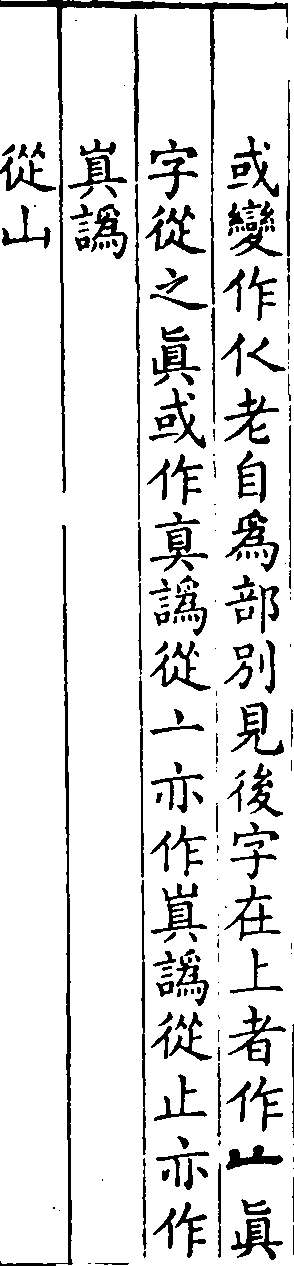 或變作老自爲部別見後字在上者作眞
字從之眞或作譌從亠亦作譌從止亦作
譌
從山